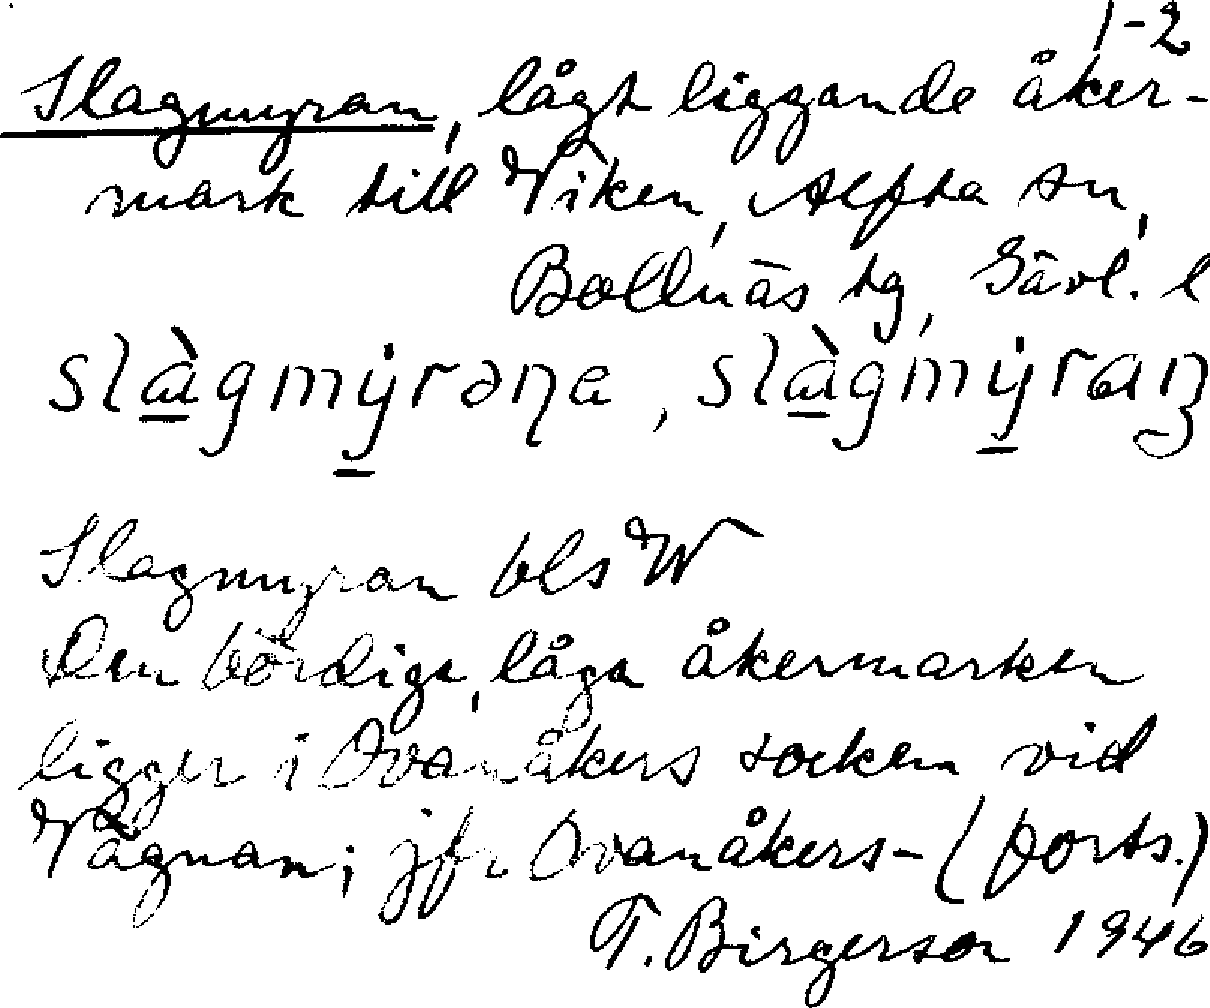 1-2
Slagmyran, lågt liggande åker-
mark till Viken, Alfta sn,
Bollnäs tg, Gävl. l
slàgmẏrəṇa, slàgmẏraṇ
Slagmyran bls W
Den bördiga, låga åkermarken
ligger i Ovanåkers socken vid
Vågnan; jfr Ovanåkers- (forts.)
T. Birgerson 1946